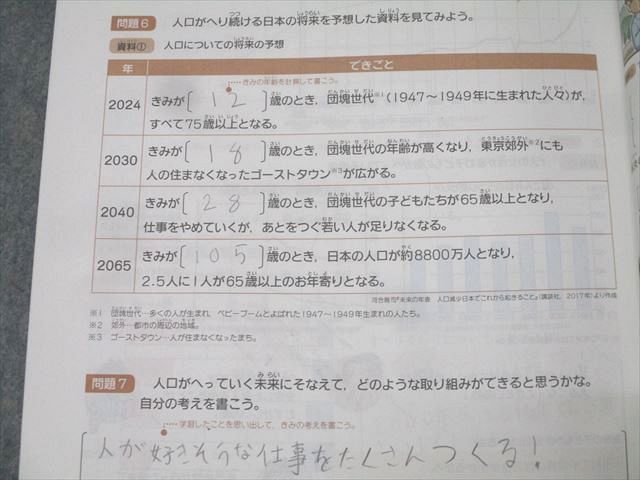 問題6 人口がへり続ける日本の将来を予想した資料を見てみよう。
資料① 人口についての将来の予想
年 できごと
きみの年齢を計算して書こう。
2024 きみが〔12〕歳のとき,団塊世代※1(1947〜1949年に生まれた人々)が,
すべて75歳以上となる。
2030 きみが〔18〕歳のとき,団塊世代の年齢が高くなり,東京郊外※2にも
人の住まなくなったゴーストタウン※3が広がる。
2040 きみが〔28〕歳のとき,団塊世代の子どもたちが65歳以上となり,
仕事をやめていくが,あとをつぐ若い人が足りなくなる。
2065 きみが〔105〕歳のとき,日本の人口が約8800万人となり,
2.5人に1人が65歳以上のお年寄りとなる。
河合雅司『未来の年表 人口減少日本でこれから起きること』(講談社,2017年)より作成
※1 団塊世代…多くの人が生まれ,ベビーブームとよばれた1947〜1949年生まれの人たち。
※2 郊外…都市の周辺の地域。
※3 ゴーストタウン…人が住まなくなったまち。
問題7 人口がへっていく未来にそなえて,どのような取り組みができると思うかな。
自分の考えを書こう。
学習したことを思い出して,きみの考えを書こう。
人が好きそうな仕事をたくさんつくる!